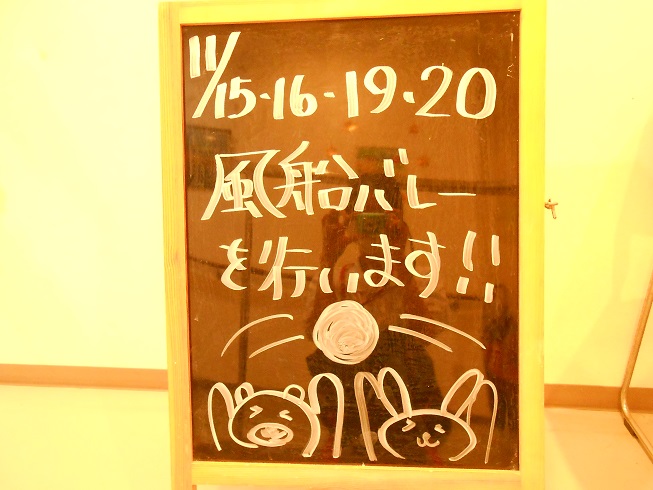 11/15・16・19・20
風船バレー
を行います!!